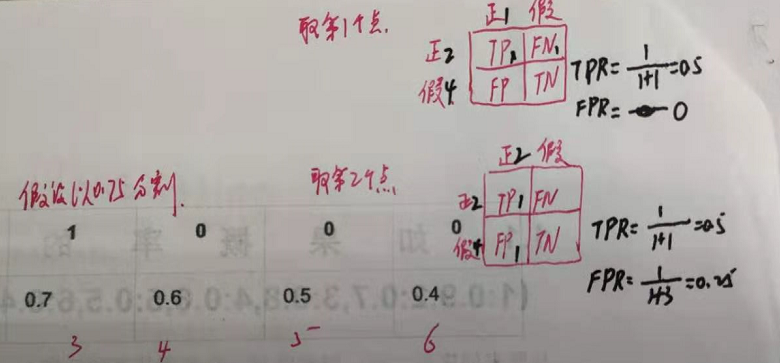 取第1个点.
正1 假
正2 TP1 FN1
假4 FP TN
TPR=1/(1+1)=0.5
FPR=0
假设以0.75分割.
取第2个点
正2 假
正2 TP1 FN
假4 FP1 TN
TPR=1/(1+1)=0.5
FPR=1/(1+3)=0.25
1 0 0 0
0.7 0.6 0.5 0.4
3 4 5 6